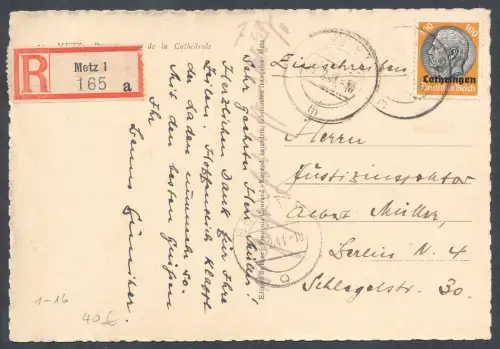 de la Cathédrale
R
Metz 1
165 a
Einschreiben
100 100
Lothringen
Deutsches Reich
Sehr geehrter Herr Müller!
Herzlichen Dank für Ihre
Zeilen. Hoffentlich klappt
der Laden nunmehr so.
Mit den besten Grüßen
Ihr
Herrn
Justizinspektor
Albert Müller,
Berlin N. 4
Schlegelstr. 30.
1-16
40